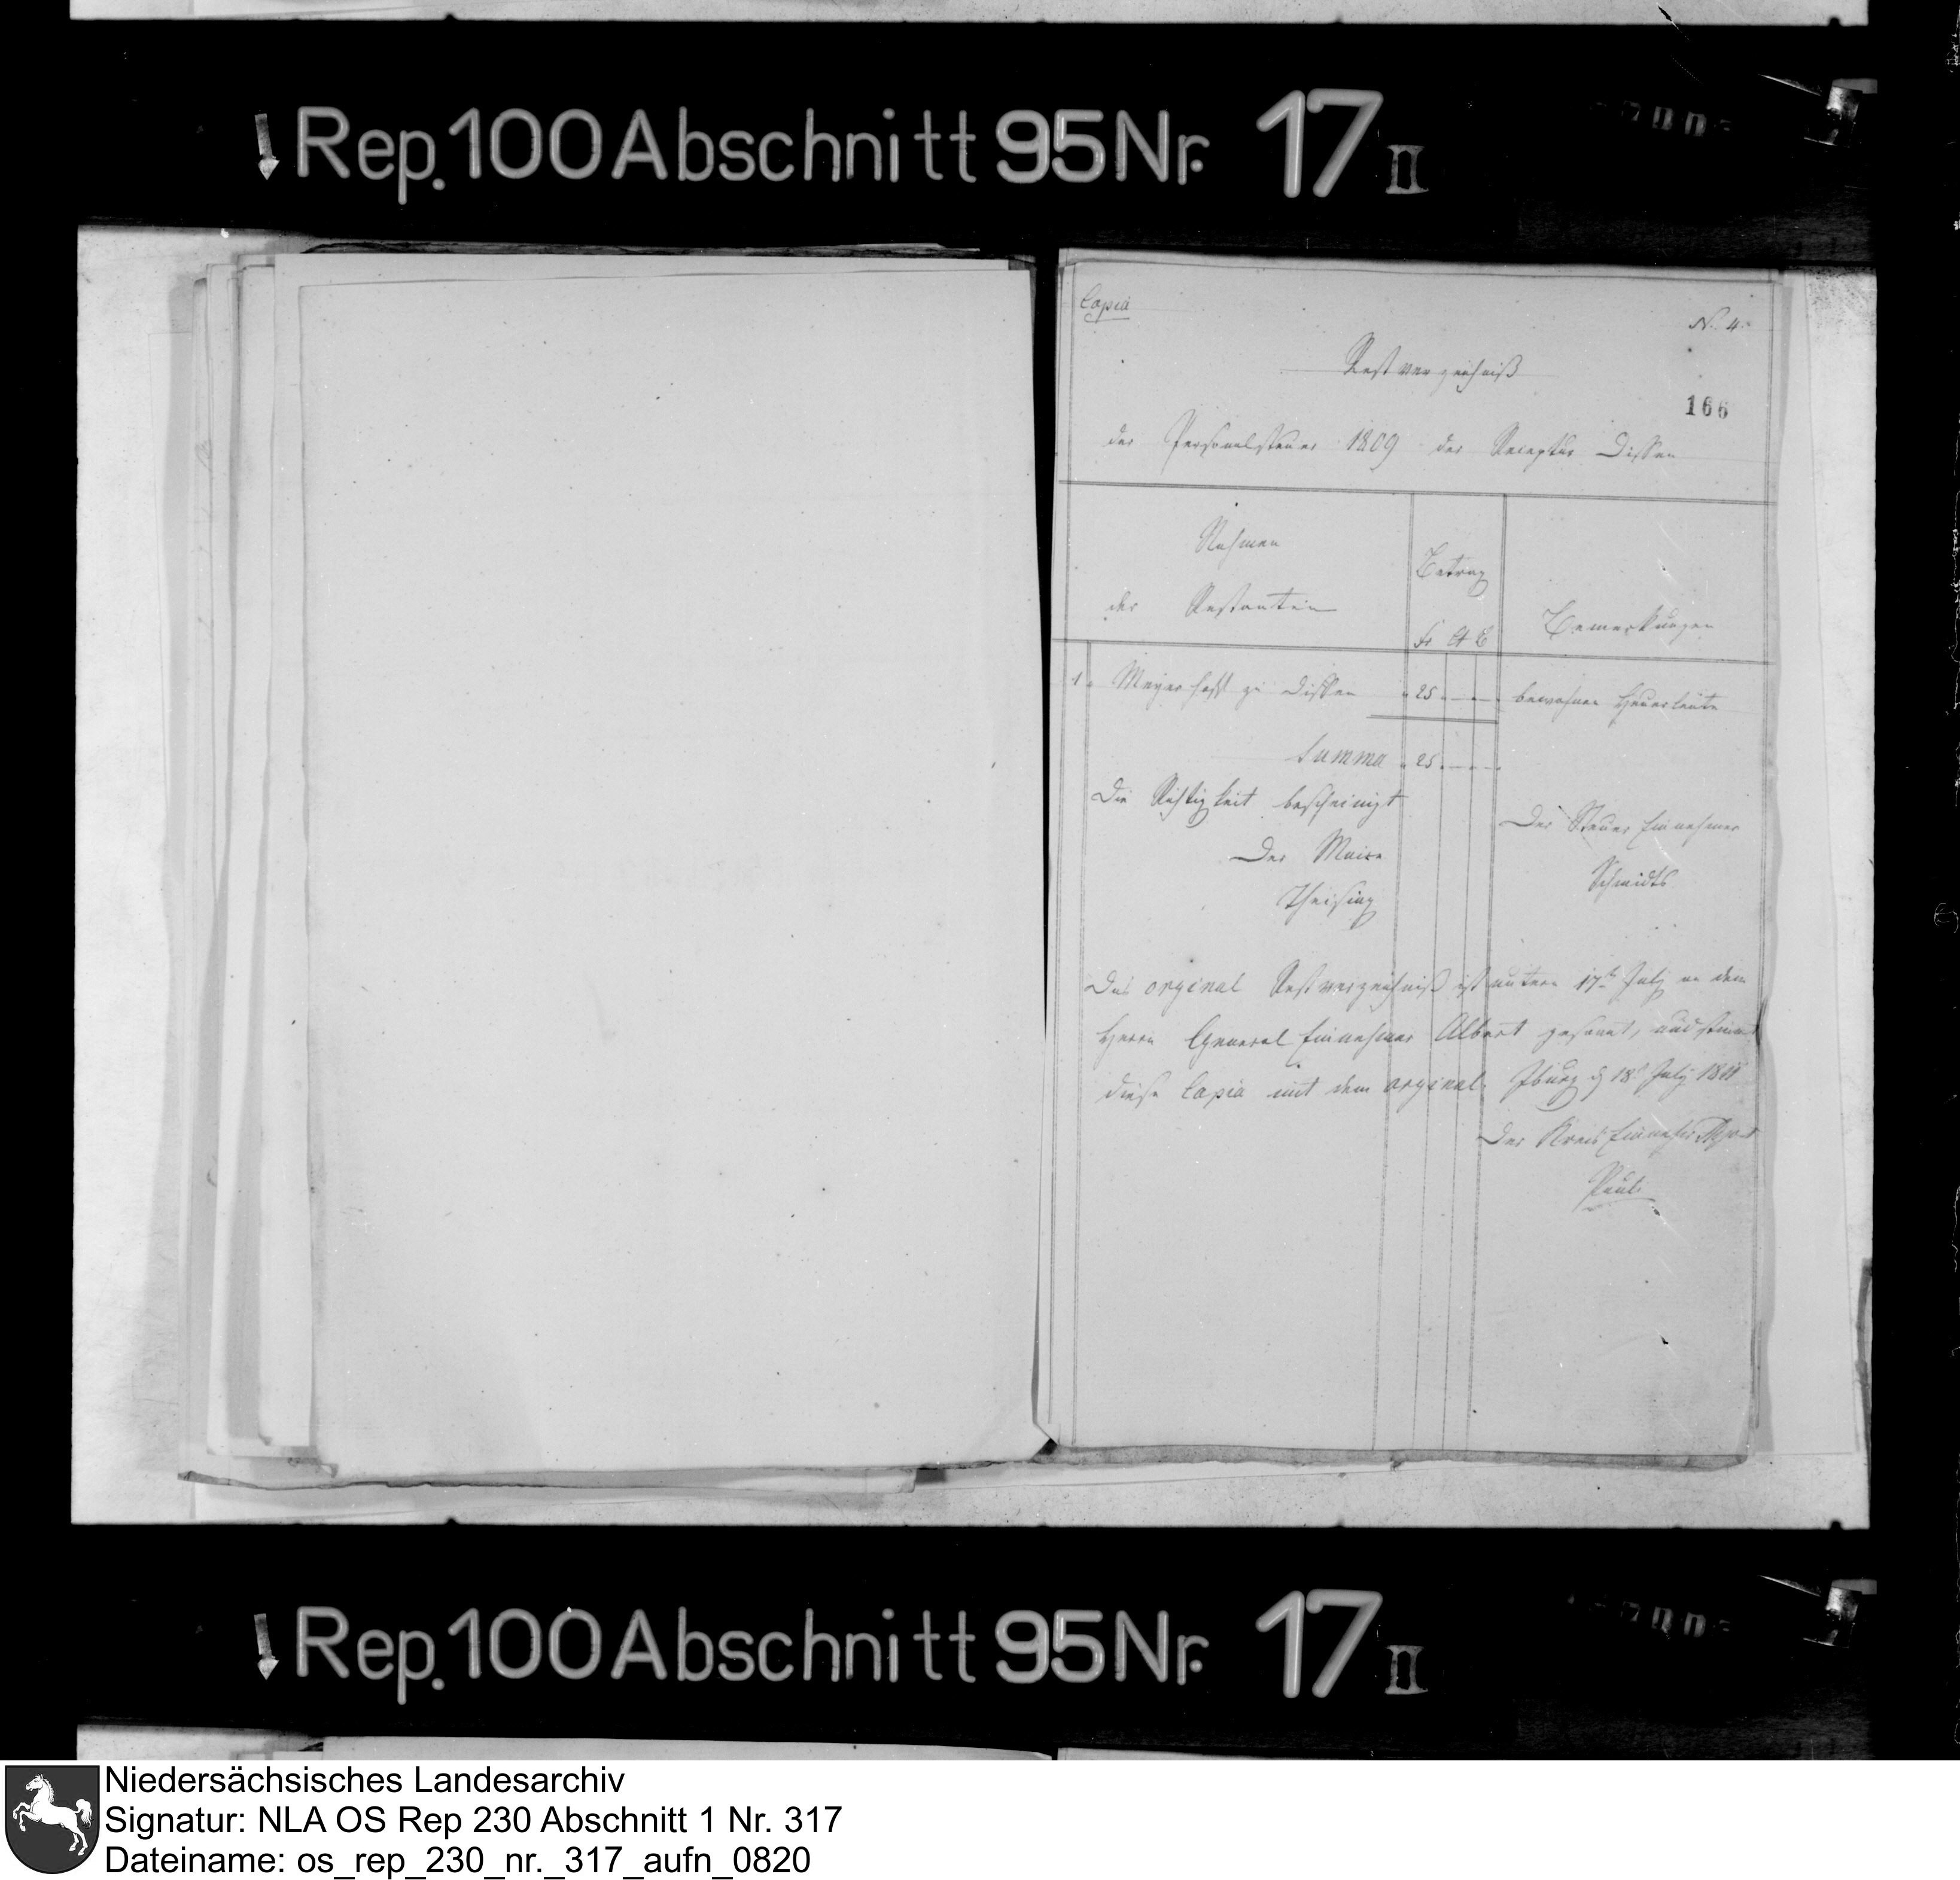 Rep. 100 Abschnitt 95 Nr. 17 II
Copia
N. 4.
Restverzeichniß
166
der Personalsteuer 1809 der Receptur Dissen
Nahmen
der Restanten
Betrag
Fr
C
Bemerkungen
1. Meyerhoff zu Dissen
25
bewohnen Heuerleute
Summa 25
Die Richtigkeit bescheinigt
Der Maire
Theising
Der Steuer Einnehmer
Schmidts
Das orginal Restverzeichniß ist unterm 17t July an den
Herrn General Einnehmer Albert gesannt, und stimmt
diese Copia mit dem orginal. Iburg d 18t July 1811
Der Kreis Einnehmer
Pauli
Rep. 100 Abschnitt 95 Nr. 17 II
Niedersächsisches Landesarchiv
Signatur: NLA OS Rep 230 Abschnitt 1 Nr. 317
Dateiname: os_rep_230_nr._317_aufn_0820